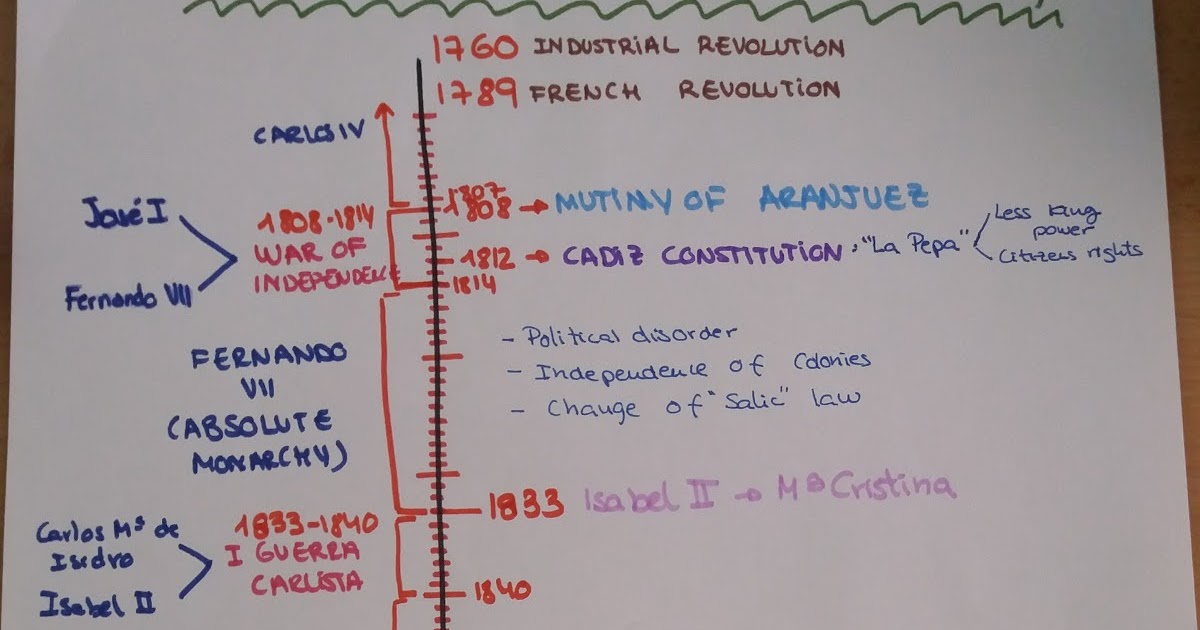 1760 INDUSTRIAL REVOLUTION
1789 FRENCH REVOLUTION
CARLOS IV
1807
1808 → MUTINY OF ARANJUEZ
José I
Fernando VII
1808-1814
WAR OF
INDEPENDENCE
1812 → CADIZ CONSTITUTION, "La Pepa"
Less king
power
Citizens rights
1814
FERNANDO
VII
(ABSOLUTE
MONARCHY)
- Political disorder
- Independence of Colonies
- Change of "Salic" law
1833 Isabel II → Mª Cristina
Carlos Mª de
Isidro
Isabel II
1833-1840
I GUERRA
CARLISTA
1840